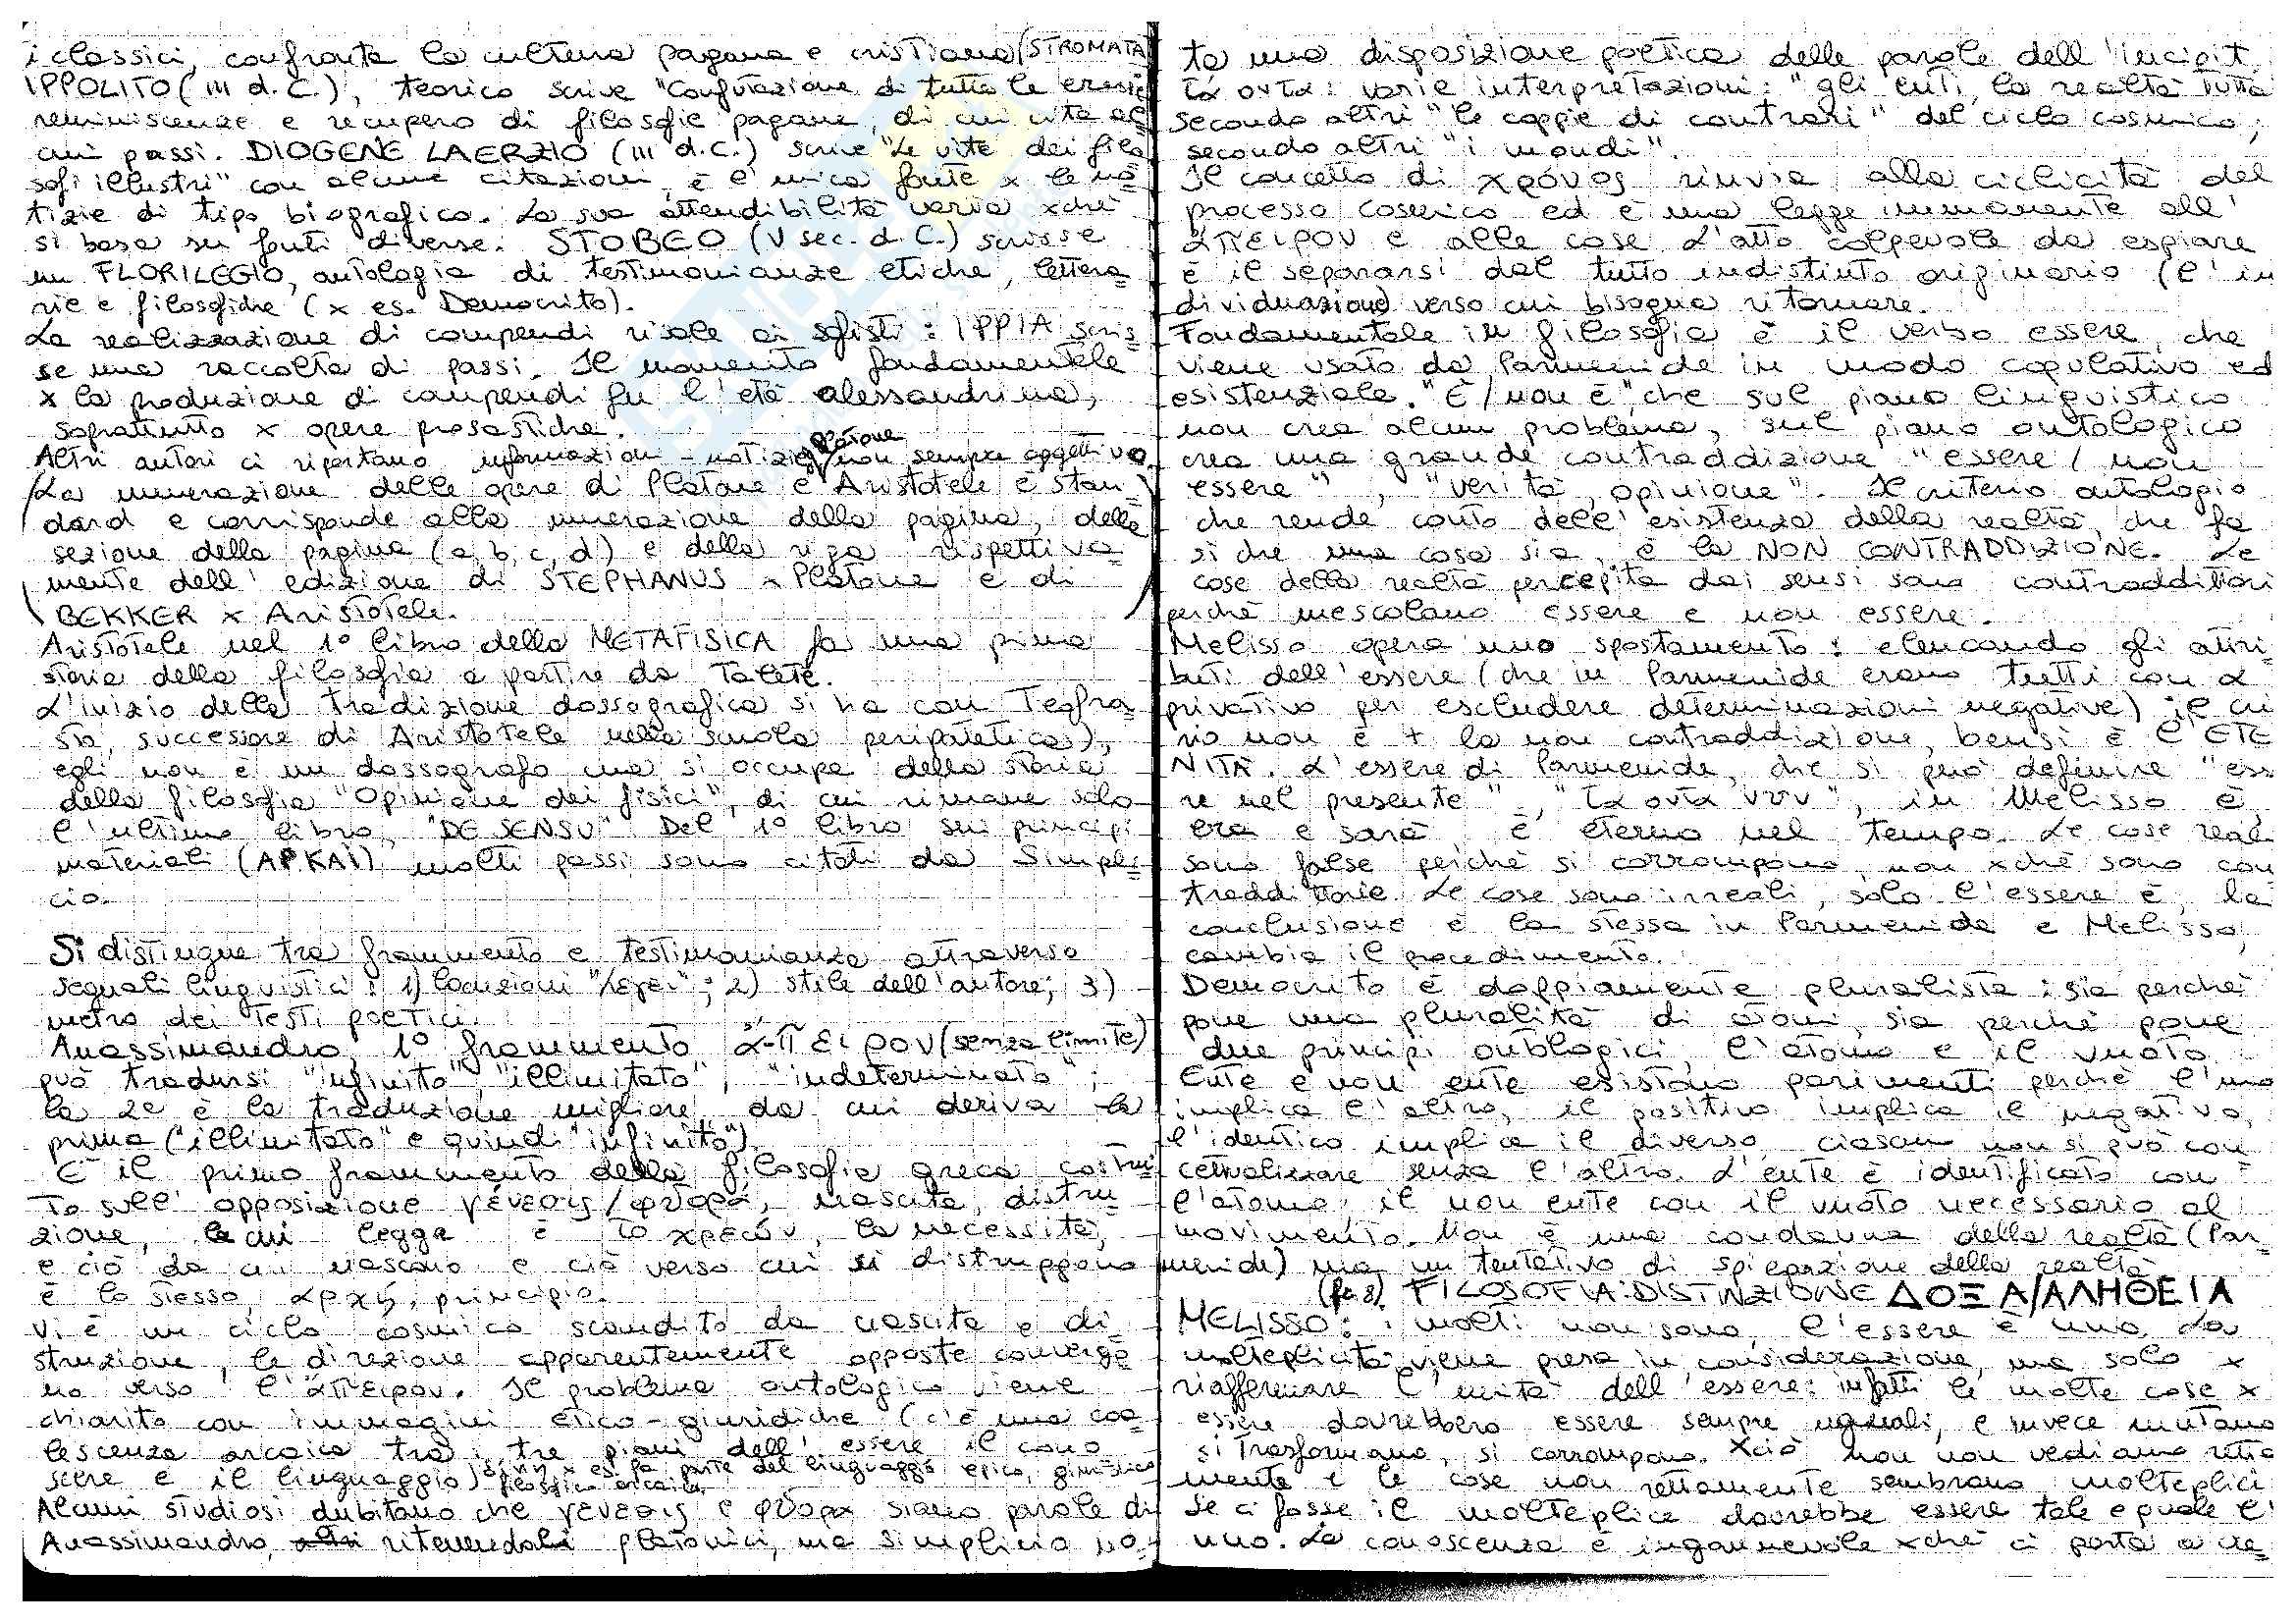 i classici, confronta la cultura pagana e cristiana (STROMATA
IPPOLITO (III d.C.), teorico scrive "Confutazione di tutte le eresie
reminiscenze e recupero di filosofie pagane, di cui cita al
cuni passi. DIOGENE LAERZIO (III d.C.) scrive "Le vite dei filo
sofi illustri" con alcune citazioni, è l'unica fonte x le no=
tizie di tipo biografico. La sua attendibilità varia xchè
si basa su fonti diverse. STOBEO (V sec. d.C.) scrisse
un FLORILEGIO, antologia di testimonianze etiche, lettera=
rie e filosofiche (x es. Democrito).
La realizzazione di compendi risale ai sofisti: IPPIA scris=
se una raccolta di passi. Il momento fondamentale
x la produzione di compendi fu l'età alessandrina,
soprattutto x opere prosastiche.
Altri autori ci riportano informazioni - notizie non sempre oggettive.
La numerazione delle opere di Platone e Aristotele è stan=
dard e corrisponde alla numerazione della pagina, della
sezione della pagina (a, b, c, d) e della riga rispettiva=
mente dell'edizione di STEPHANUS x Platone e di
BEKKER x Aristotele.
Aristotele nel 1° libro della METAFISICA fa una prima
storia della filosofia a partire da Talete.
L'inizio della tradizione dossografica si ha con Teofra=
sto, successore di Aristotele nella scuola peripatetica),
egli non è un dossografo ma si occupa della storia
della filosofia "Opinione dei fisici", di cui rimane solo
l'ultimo libro, "DE SENSU". Del 1° libro sui principi
materiali (APKAI) molti passi sono citati da Simpli=
cio.
Si distingue tra frammento e testimonianza attraverso
segnali linguistici: 1) locuzioni "λεγει"; 2) stile dell'autore; 3)
metro dei testi poetici.
Anassimandro, 1° frammento ἄ-πειρον (senza limite)
può tradursi "infinito", "illimitato", "indeterminato";
la 2e è la traduzione migliore, da cui deriva la
prima ("illimitato" e quindi "infinito").
È il primo frammento della filosofia greca costrui=
to sull'opposizione γένεσις/φθορά, nascita, distru=
zione, la cui legge è τὸ χρεών, la necessità,
e ciò da cui nascono e ciò verso cui si distruggono
è lo stesso, αρχή, principio.
Vi è un ciclo cosmico scandito da nascita e di=
struzione, le direzione apparentemente opposte convergo=
no verso l'ἄπειρον. Il problema ontologico viene
chiarito con immagini etico-giuridiche (c'è una coa=
lescenza arcaica tra i tre piani dell'essere il cono
scere e il linguaggio) x es. fa parte del linguaggio epico, giuridico
filosofico arcaico.
Alcuni studiosi dubitano che γενεσις e φθορα siano parole di
Anassimandro, ritenendoli platonici, ma Simplicio no=
ta una disposizione poetica delle parole dell'incipit.
τὰ οντα: varie interpretazioni: "gli enti, la realtà tutta
secondo altri "le coppie di contrari" del ciclo cosmico;
secondo altri "i mondi".
Il concetto di χρόνος rinvia alla ciclicità del
processo cosmico ed è una legge immanente all'
ἄπειρον e alle cose. L'atto colpevole da espiare
è il separarsi dal tutto indistinto originario (l'in
dividuazione) verso cui bisogna ritornare.
Fondamentale in filosofia è il verbo essere, che
viene usato da Parmenide in modo copulativo ed
esistenziale. "È/non è", che sul piano linguistico
non crea alcun problema, sul piano ontologico
crea una grande contraddizione "essere/non
essere", "verità, opinione". Il criterio ontologio
che rende conto dell'esistenza della realtà, che fa
sì che una cosa sia, è la NON CONTRADDIZIONE. Le
cose della realtà percepita dai sensi sono contradditiori
perchè mescolano essere e non essere.
Melisso opera uno spostamento: elencando gli attri=
buti dell'essere (che in Parmenide erano tutti con α
privativo per escludere determinazioni negative) il cri
rio non è + la non contraddizione, bensì è L'ETE
NITÀ. L'essere di Parmenide, che si può definire "ess
re nel presente", "τα οντα νυν", in Melisso è,
era e sarà è eterno nel tempo. Le cose reali
sono false perchè si corrompono, non xchè sono con
traddittorie. Le cose sono irreali, solo l'essere è, la
conclusione è la stessa in Parmenide e Melisso,
cambia il procedimento.
Democrito è doppiamente pluralista: sia perchè
pone una pluralità di atomi, sia perchè pone
due principi ontologici, l'atomo e il vuoto.
Ente e non ente esistono parimenti perchè l'uno
implica l'altro, il positivo implica il negativo,
l'identico implica il diverso, ciascun non si può con
cettualizzare senza l'altro. L'ente è identificato con
l'atomo, il non ente con il vuoto necessario al
movimento. Non è una condanna della realtà (Par=
menide) ma un tentativo di spiegazione della realtà
(fr. 8). FILOSOFIA: DISTINZIONE ΔΟΞΑ/ΑΛΗΘΕΙΑ
MELISSO: i molti non sono, l'essere è uno. La
molteplicità viene presa in considerazione, ma solo x
riaffermare l'unità dell'essere: infatti le molte cose x
essere dovrebbero essere sempre uguali, e invece mutano
si trasformano, si corrompono. Xciò noi non vediamo retta
mente e le cose non rettamente sembrano molteplici
Se ci fosse il molteplice dovrebbe essere tale e quale l'
uno. La conoscenza è ingannevole xchè ci porta a cre=